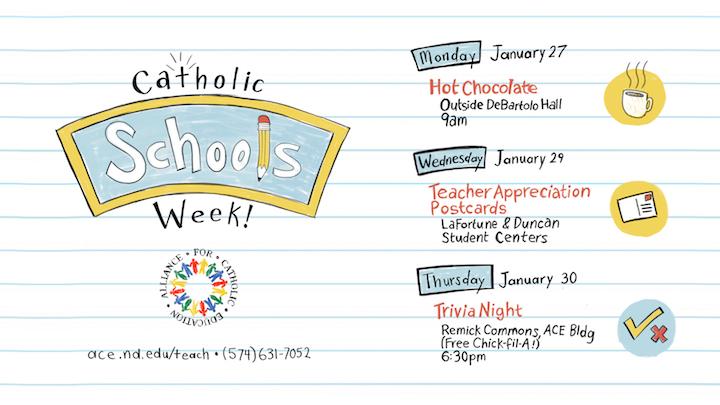 Catholic
Schools
Week!
ALLIANCE • FOR • CATHOLIC • EDUCATION •
ace.nd.edu/teach • (574)631-7052
Monday January 27
Hot Chocolate
Outside DeBartolo Hall
9am
Wednesday January 29
Teacher Appreciation
Postcards
LaFortune & Duncan
Student Centers
Thursday January 30
Trivia Night
Remick Commons, ACE Bldg
(Free Chick-fil-A!)
6:30pm